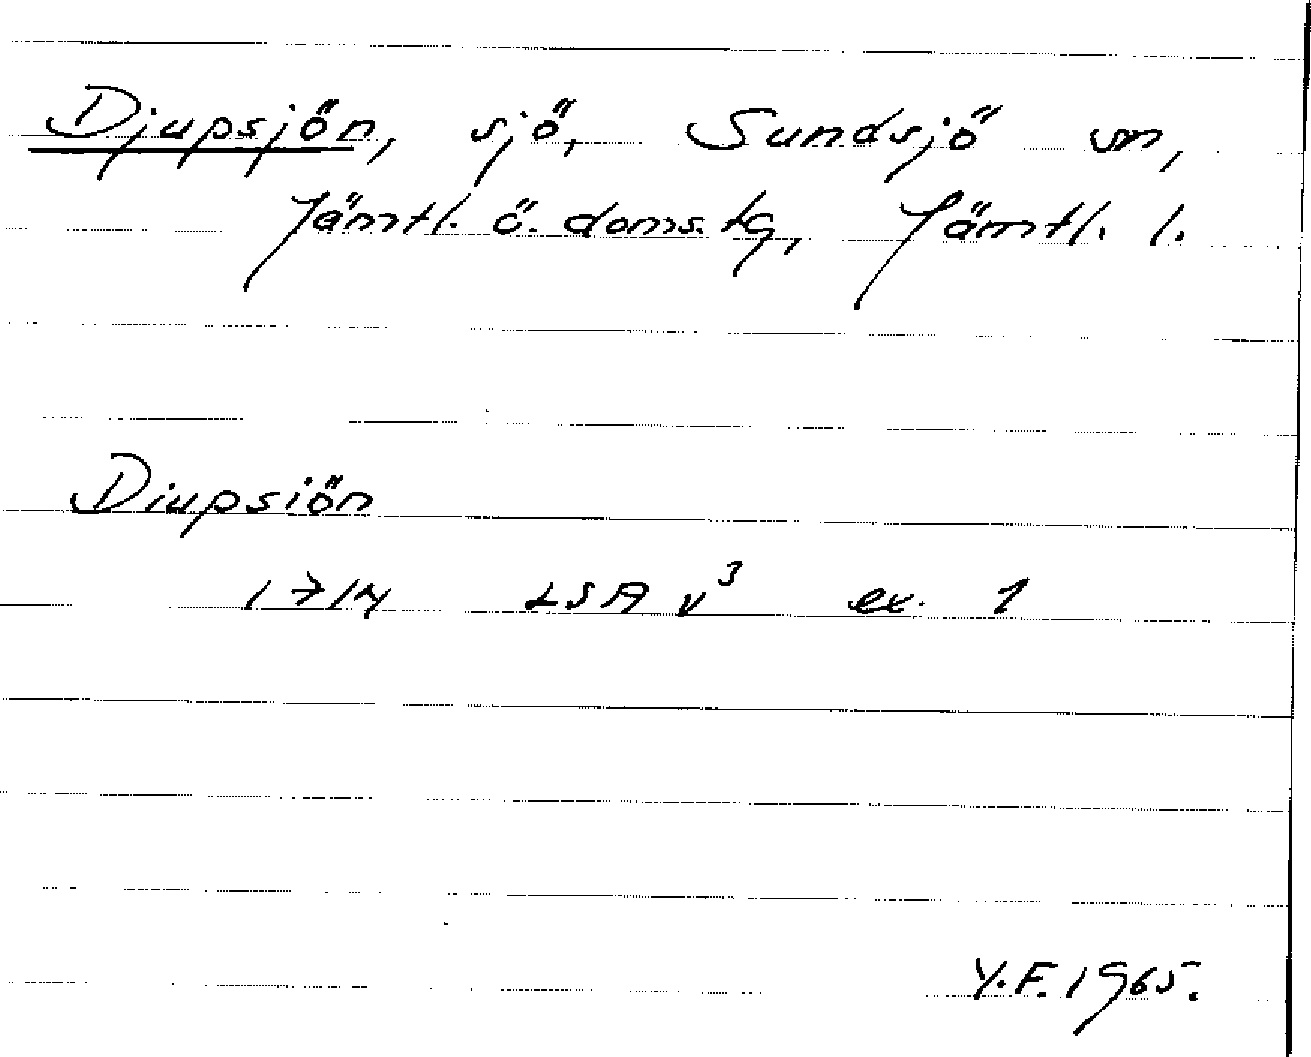 Djupsjön, sjö, Sundsjö sn,
Jämtl. ö. doms. tg, Jämtl. l.
Diupsiön
1714 LSA v³ ex. 1
Y.F. 1965.